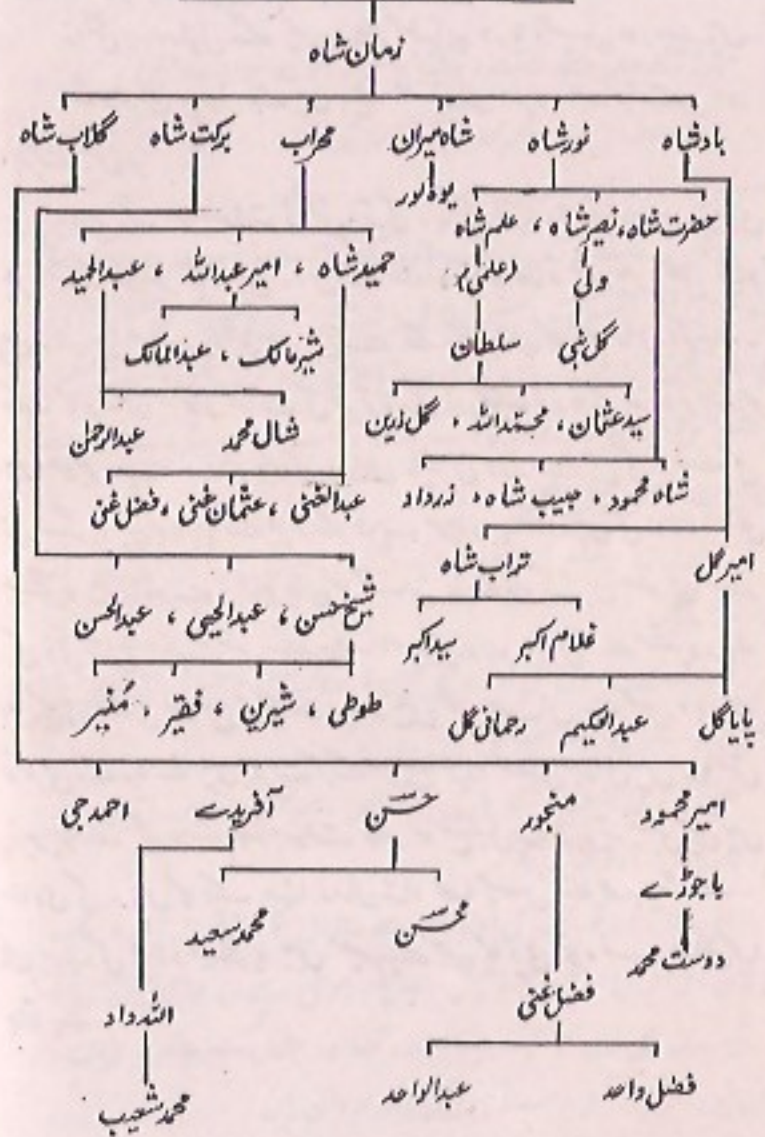 زمان شاہ
بادشاہ نورشاہ شاہ میران محراب برکت شاہ گلاب شاہ
یوہ لور
حضرت شاہ، نصیر شاہ، علم شاہ
(علمی)
ولی
سلطان
گل نبی
سید عثمان، مجتد اللہ، گل زین
شاہ محمود، حبیب شاہ، زرداد
حمید شاہ، امیر عبداللہ، عبدالحمید
شیر مالک، عبدالمالک
شال محمد عبدالرحمٰن
عبدالغنی، عثمان غنی، فضل غنی
امیر گل
تراب شاہ
غلام اکبر سید اکبر
شیخ حسن، عبدالحیی، عبدالحسن
طوطی، شیرین، فقیر، مُنیر
پایا گل عبدالحکیم رحمانی گل
امیر محمود منجور حسن آفریدے احمد جی
باجوڑے
محسن محمد سعید
دوست محمد
فضل غنی
اللہ داد
فضل واحد عبدالواحد
محمد شعیب